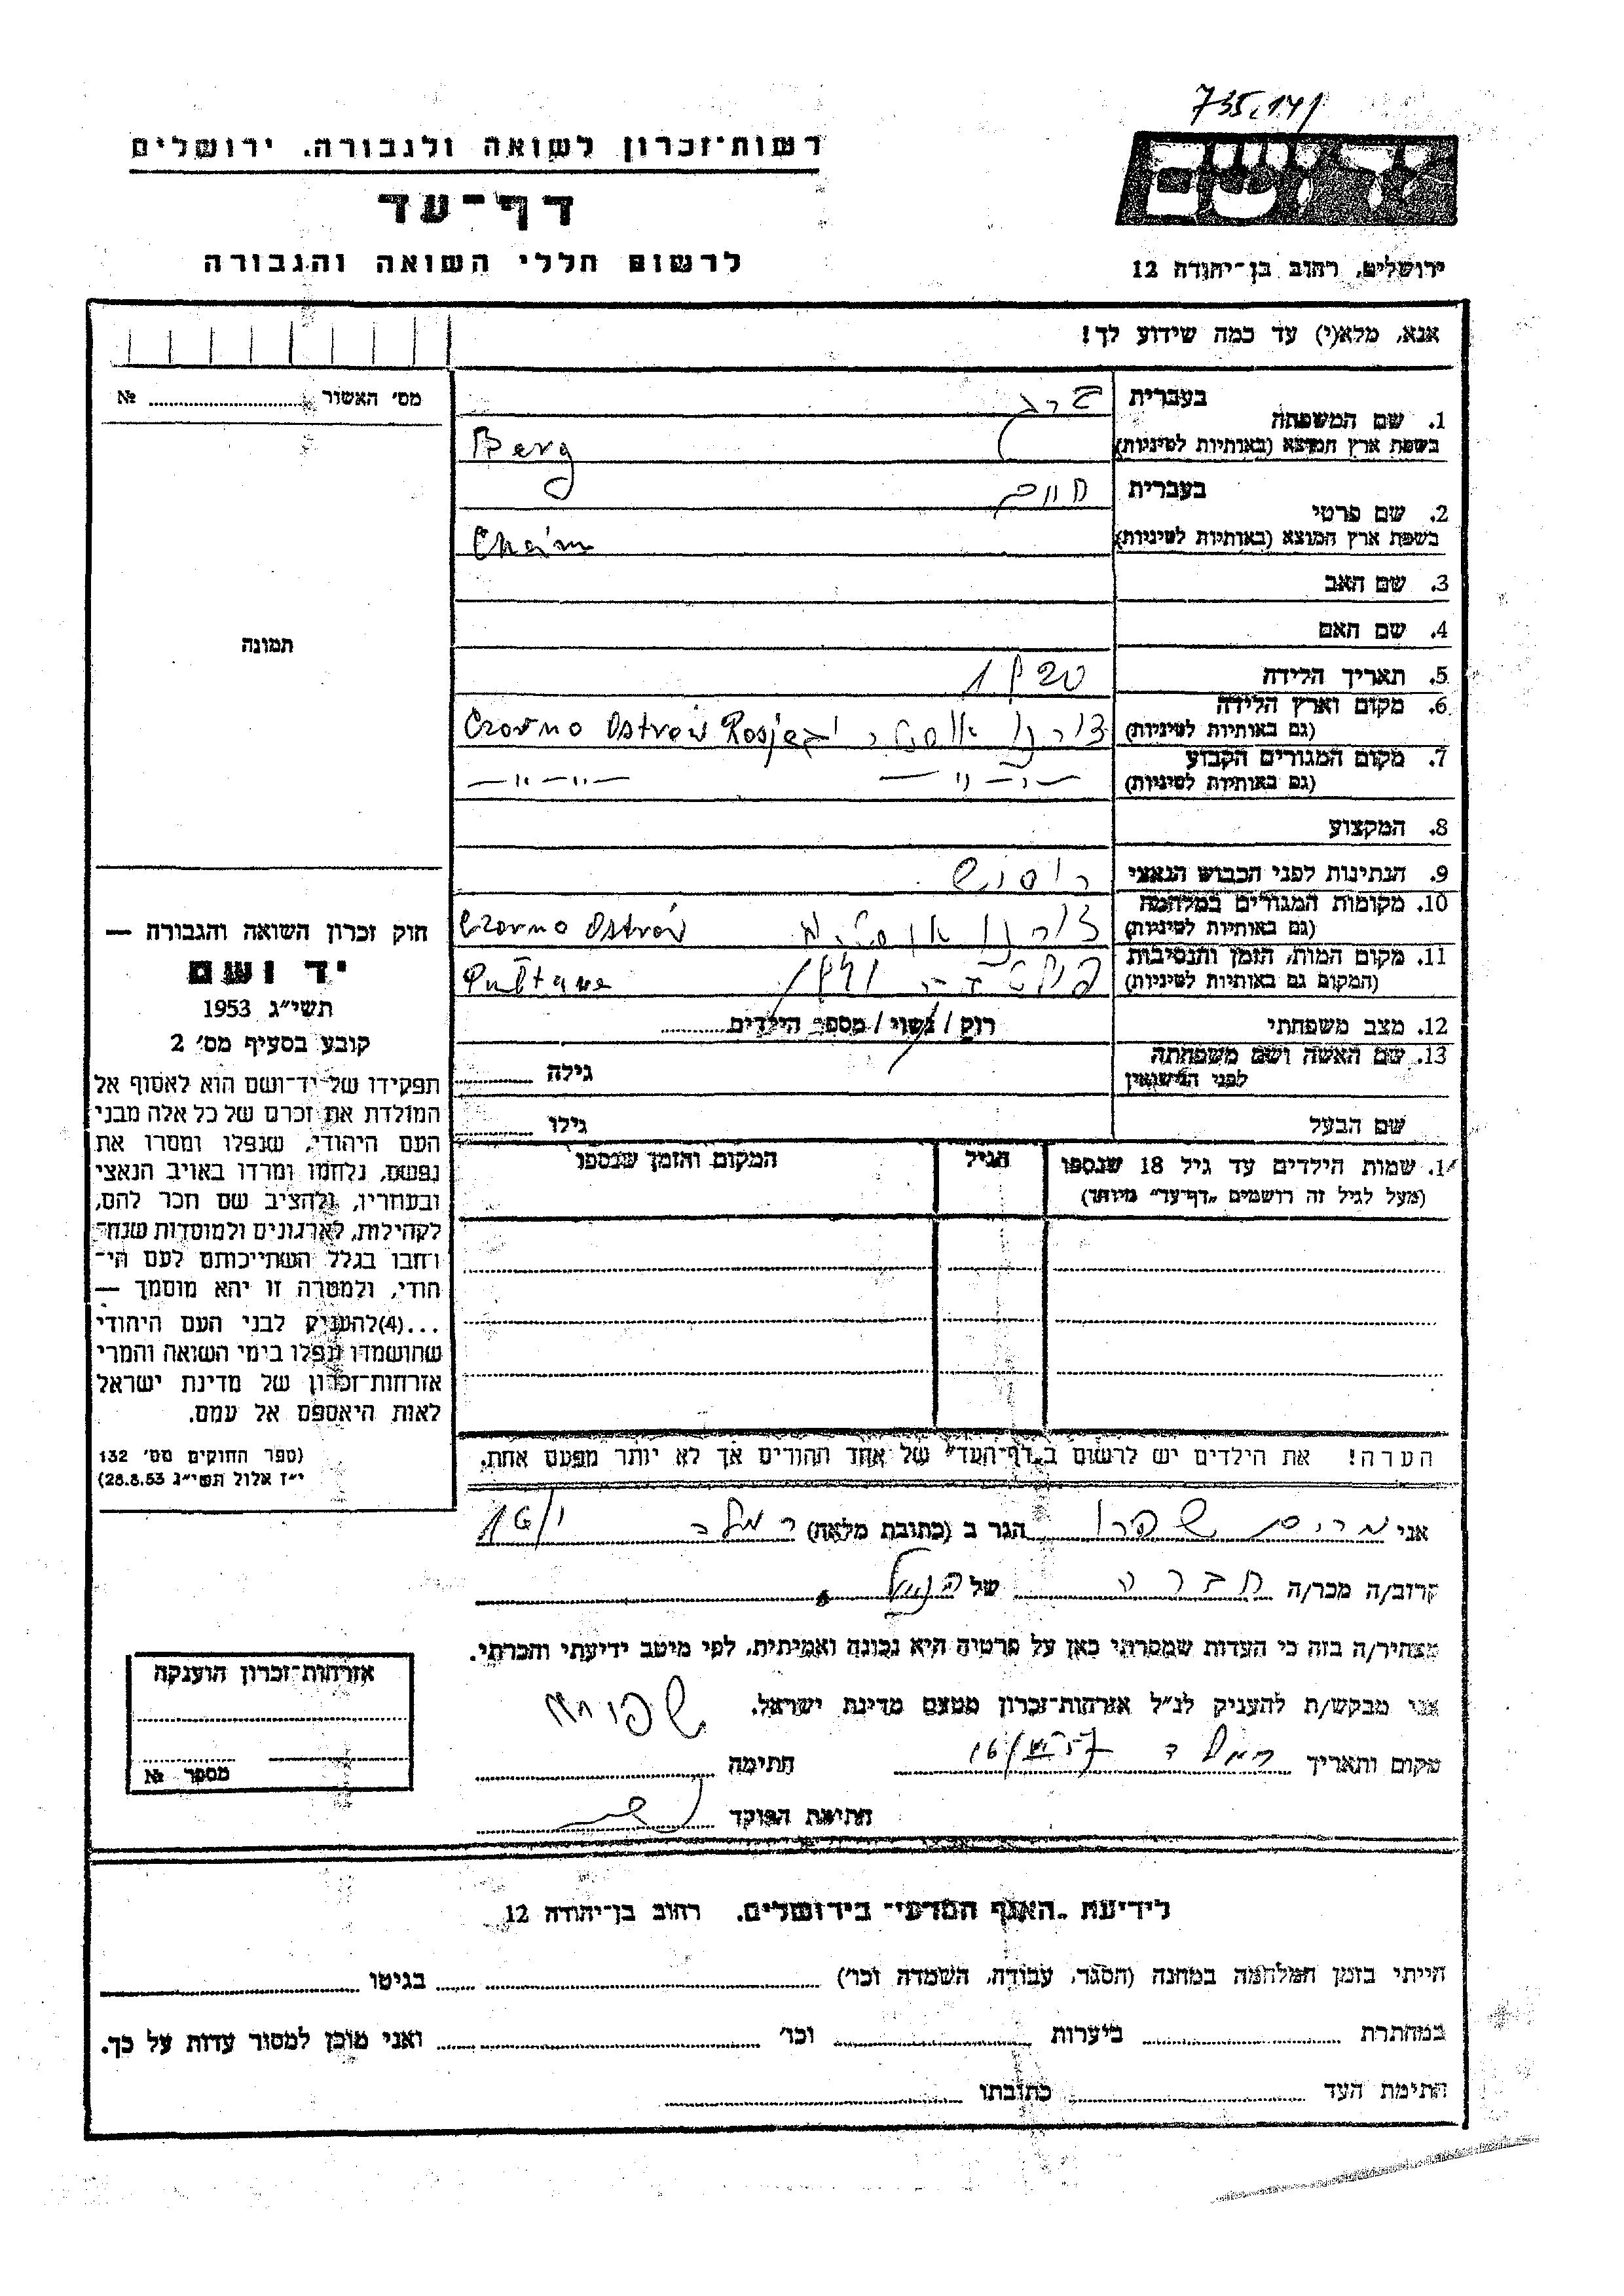 735,141
רשות־זכרון לשואה ולגבורה. ירושלים
יד ושם
דף־עד
לרשום חללי השואה והגבורה
ירושלים, רחוב בן־יהודה 12
אנא, מלא(י) עד כמה שידוע לך!
מס׳ האשור № 
1. שם המשפחה
בעברית ברג
בשפת ארץ המוצא (באותיות לטיניות) Berg
2. שם פרטי
בעברית חיים
בשפת ארץ המוצא (באותיות לטיניות) Chaim
3. שם האב
4. שם האם
5. תאריך הלידה 1920
6. מקום וארץ הלידה
(גם באותיות לטיניות) Czorno Ostrów Rosja
7. מקום המגורים הקבוע
(גם באותיות לטיניות) —״—״—
8. המקצוע
9. הנתינות לפני הכבוש הנאצי
10. מקומות המגורים במלחמה
(גם באותיות לטיניות) Czorno Ostrów
11. מקום המות, הזמן והנסיבות
(המקום גם באותיות לטיניות) 1941 Pułtawa
12. מצב משפחתי רוק / נשוי / מספר הילדים
13. שם האשה ושם משפחתה
לפני הנישואין גילה
שם הבעל גילו
תמונה
חוק זכרון השואה והגבורה —
יד ושם
תשי״ג 1953
קובע בסעיף מס׳ 2
תפקידו של יד־ושם הוא לאסוף אל
המולדת את זכרם של כל אלה מבני
העם היהודי, שנפלו ומסרו את
נפשם, נלחמו ומרדו באויב הנאצי
ובעוזריו, ולהציב שם וזכר להם,
לקהילות, לארגונים ולמוסדות שנח־
רבו בגלל השתייכותם לעם הי־
הודי, ולמטרה זו יהא מוסמך —
...(4)להעניק לבני העם היהודי
שהושמדו ונפלו בימי השואה והמרי
אזרחות־זכרון של מדינת ישראל
לאות היאספם אל עמם.
(ספר החוקים מס׳ 132
י״ז אלול תשי״ג 28.8.53)
שמות הילדים עד גיל 18 שנספו הגיל המקום והזמן שנספו
(מעל לגיל זה רושמים „דף־עד״ מיוחד)
הערה! את הילדים יש לרשום ב„דף־העד״ של אחד ההורים אך לא יותר מפעם אחת.
אני מרים שפרו הגר ב (כתובת מלאה) רמלה
קרוב/ה מכר/ה חברה של הנ״ל
מצהיר/ה בזה כי העדות שמסרתי כאן על פרטיה היא נכונה ואמיתית, לפי מיטב ידיעתי והכרתי.
אני מבקש/ת להעניק לנ״ל אזרחות־זכרון מטעם מדינת ישראל.
מקום ותאריך רמלה חתימה
חתימת הפוקד
אזרחות־זכרון הוענקה
מספר №
לידיעת „האגף המדעי״ בירושלים. רחוב בן־יהודה 12
הייתי בזמן המלחמה במחנה (הסגר, עבודה, השמדה וכו׳) בגיטו
במחתרת ביערות וכו׳ ואני מוכן למסור עדות על כך.
חתימת העד כתובתו